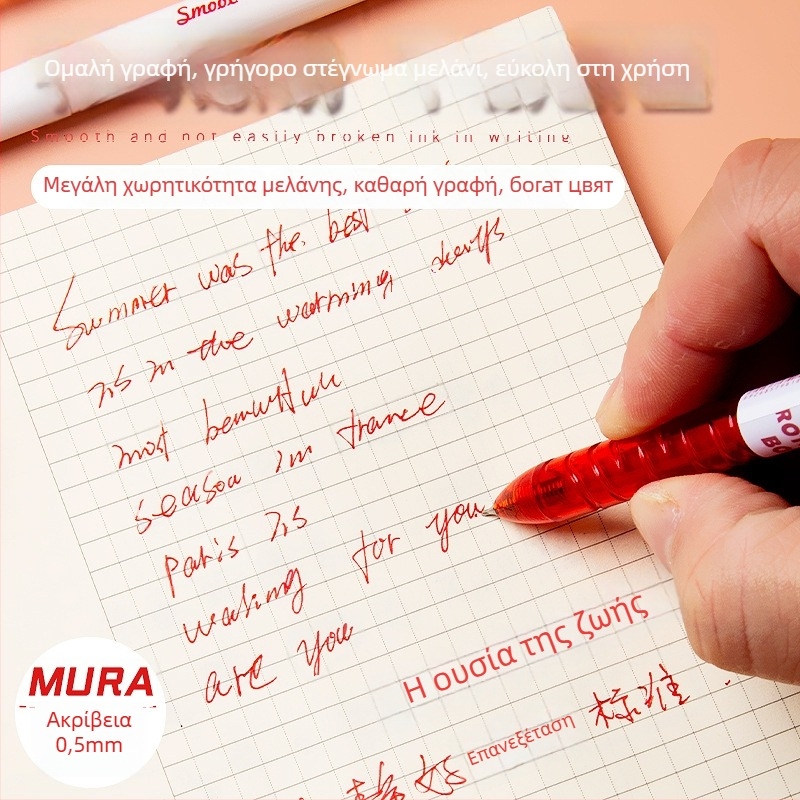 Smoot
Ομαλή γραφή, γρήγορο στέγνωμα μελάνι, εύκολη στη χρήση
Smooth and not easily broken ink in writing
Μεγάλη χωρητικότητα μελάνης, καθαρή γραφή, богат цвят
Summer was the best
is in the warming
most
season in france
Paris is
waiting for you
are you
ROT
BO
Η ουσία της ζωής
MURA
Ακρίβεια
0,5mm
Επανεξέταση 标准
好